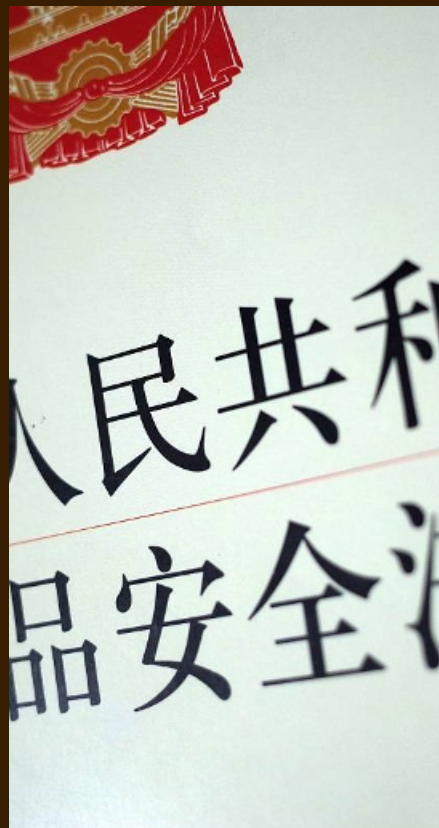 人民共和
品安全法